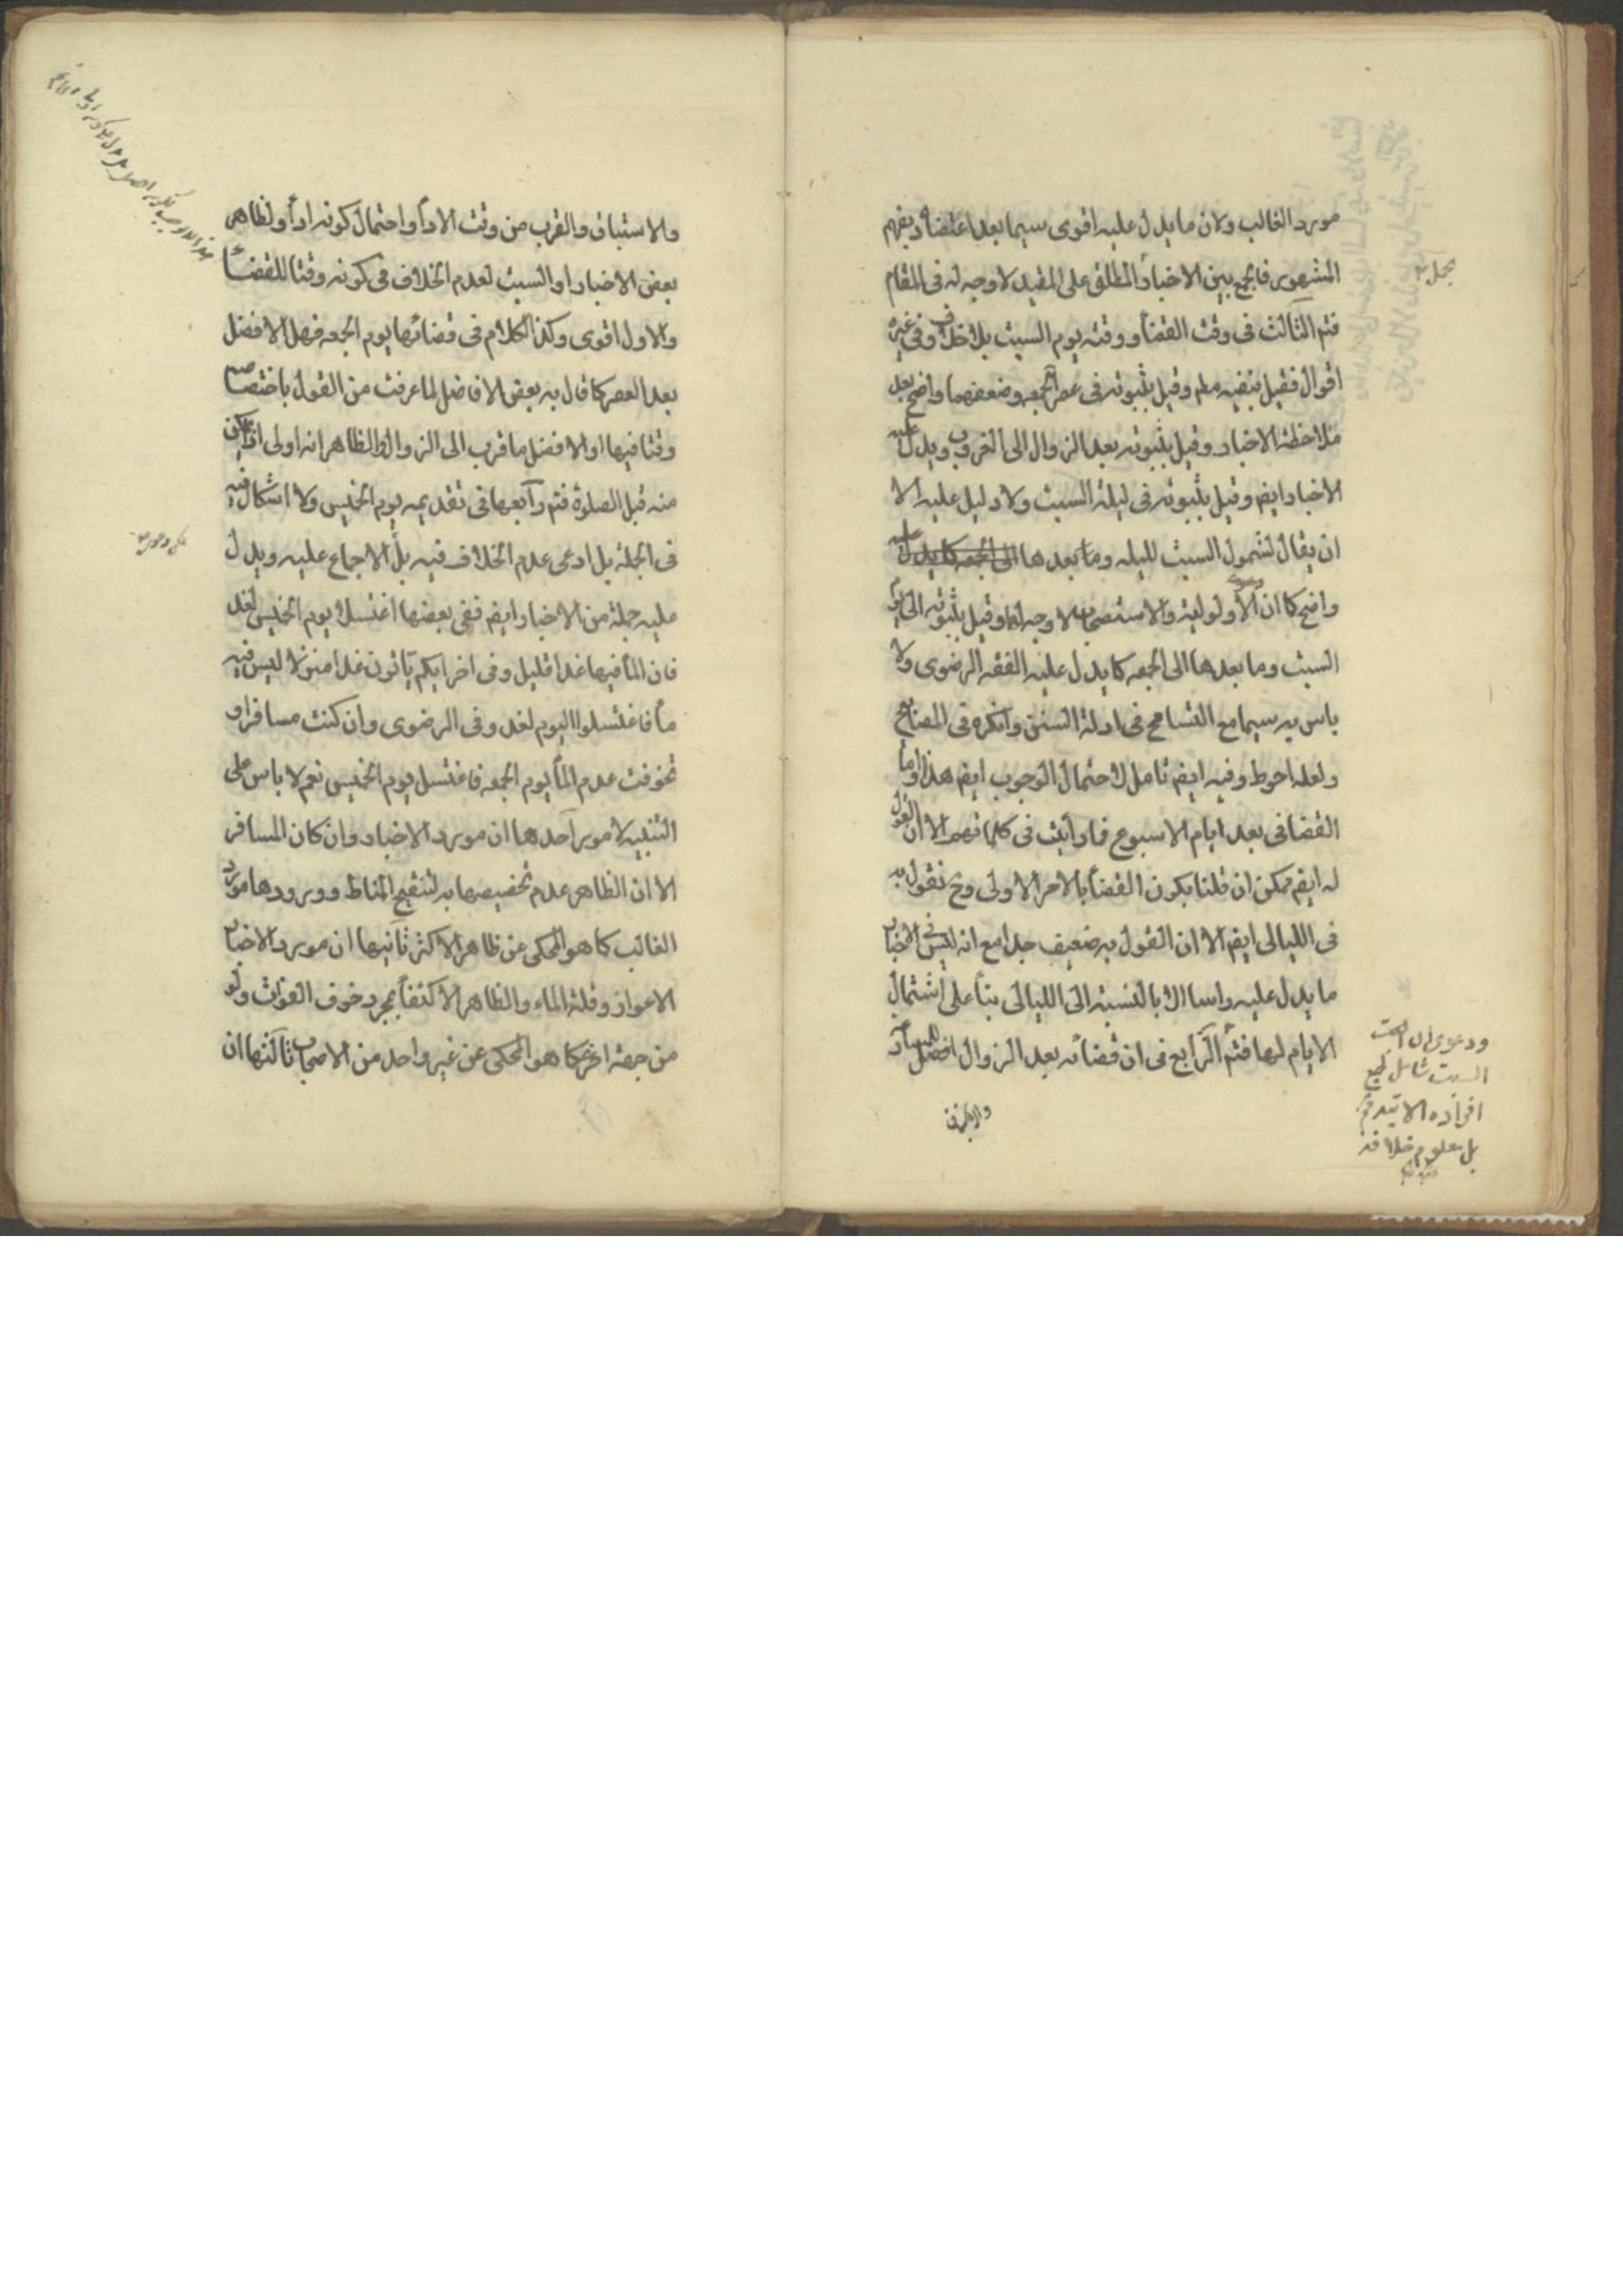 مورد الغالب ولان ما يدل عليه اقوى سيما بعد اعتضاده بفهم
المشهور فالجمع بين الاخبار المطلق على المقيد لا وجه له فى المقام
بحمل
فتم الثالث فى وقت القضاء ووقته يوم السبت بلا خلاف وفى غيره
اقوال فقيل بنفيه مطم وقيل بثبوته فى عصر الجمعه وضعفهما واضح بعد
ملاحظة الاخبار وقيل بثبوته بعد الزوال الى الغروب ويدل عليه
الاخبار ايضم وقيل بثبوته فى ليلة السبت ولا دليل عليه الا
ان يقال لشمول السبت لليله وما بعدها الى الجمعه كما يدل عليه
واضح كما ان الاولولية ودعوى والاستصحاب لا وجه لها وقيل بثبوته الى يوم
السبت وما بعدها الى الجمعه كما يدل عليه الفقه الرضوى ولا
باس به سيما مع التسامح فى ادلة السنن وانكره فى المصابيح
ولعله احوط وفيه ايضم تامل لاحتمال الوجوب ايضم هذا واما
القضا فى بعد ايام الاسبوع فما رايت فى كلماتهم الا ان القول
له ايضم ممكن ان قلنا بكون القضاء بالامر الاولى وح نقول به
فى الليالى ايضم الا ان القول به ضعيف جدا مع انه ليس فى الاخبار
ما يدل عليه واسا الا بالنسبة الى الليالى بناء على اشتمال
الايام لها فتم الرابع فى ان قضائه بعد الزوال افضل للمساد
ودعوى ان
السبت شامل لجميع
افراده الا
بل معلوم خلافه
والاستباق والقرب من وقت الاداء واحتمال كونه اداء ولظاهر
بعض الاخبار او السبت لعدم الخلاف فى كونه وقتا للقضاء
والاول اقوى وكذا الكلام فى قضائها يوم الجمعه فهل الافضل
بعد العصر كما قال به بعض الافاضل لما عرفت من القول باختصاصه
وقتا فيها او الافضل ما قرب الى الزوال والظاهر انه اولى ان يمكن
منه قبل الصلوة فتم وآبعها فى تقديمه يوم الخميس ولا اشكال فيه
فى الجملة بل ادعى عدم الخلاف فيه بل الاجماع عليه ويدل
عليه جملة من الاخبار ايضم ففى بعضها اغتسل يوم الخميس لغد
فان الماء فيها غدا قليل وفى اخر انكم تاتون غدا منزلا ليس فيه
ماء فاغتسلوا اليوم لغد وفى الرضوى وان كنت مسافرا و
تخوفت عدم الماء يوم الجمعه فاغتسل يوم الخميس نعم لا باس على
التنبيه لامور احدها ان مورد الاخبار وان كان المسافر
الا ان الظاهر عدم تخصيصها به لتنقيح المناط وورودها مورد
الغالب كما هو المحكى عن ظاهر الاكثر ثانيها ان مورد الاخبار
الاعواز وقلة الماء والظاهر الاكتفاء بمجرد خوف الفوات ولو
من جهة اخرى كما هو المحكى عن غير واحد من الاصحاب ثالثها ان